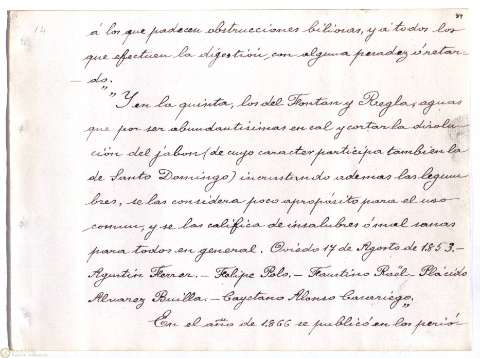 14
á los que padecen obstrucciones biliosas, y á todos los
que efectuen la digestión, con alguna pesadez ó retar-
do.
" "Y en la quinta, los del Fontan y Regla, aguas
que por ser abundantísimas en cal y cortar la disolu-
ción del jabon (de cuyo caracter participa tambien la
de Santo Domingo) incrustando ademas las legum-
bres, se las considera poco apropósito para el uso
comun, y se las califica de insalubres ó mal sanas
para todos en general. Oviedo 17 de Agosto de 1853.–
Agustin Ferrer.– Felipe Pols.– Faustino Roél– Plácido
Alvarez Builla.– Cayetano Alonso Casariego."
En el año de 1866 se publicó en los perió-